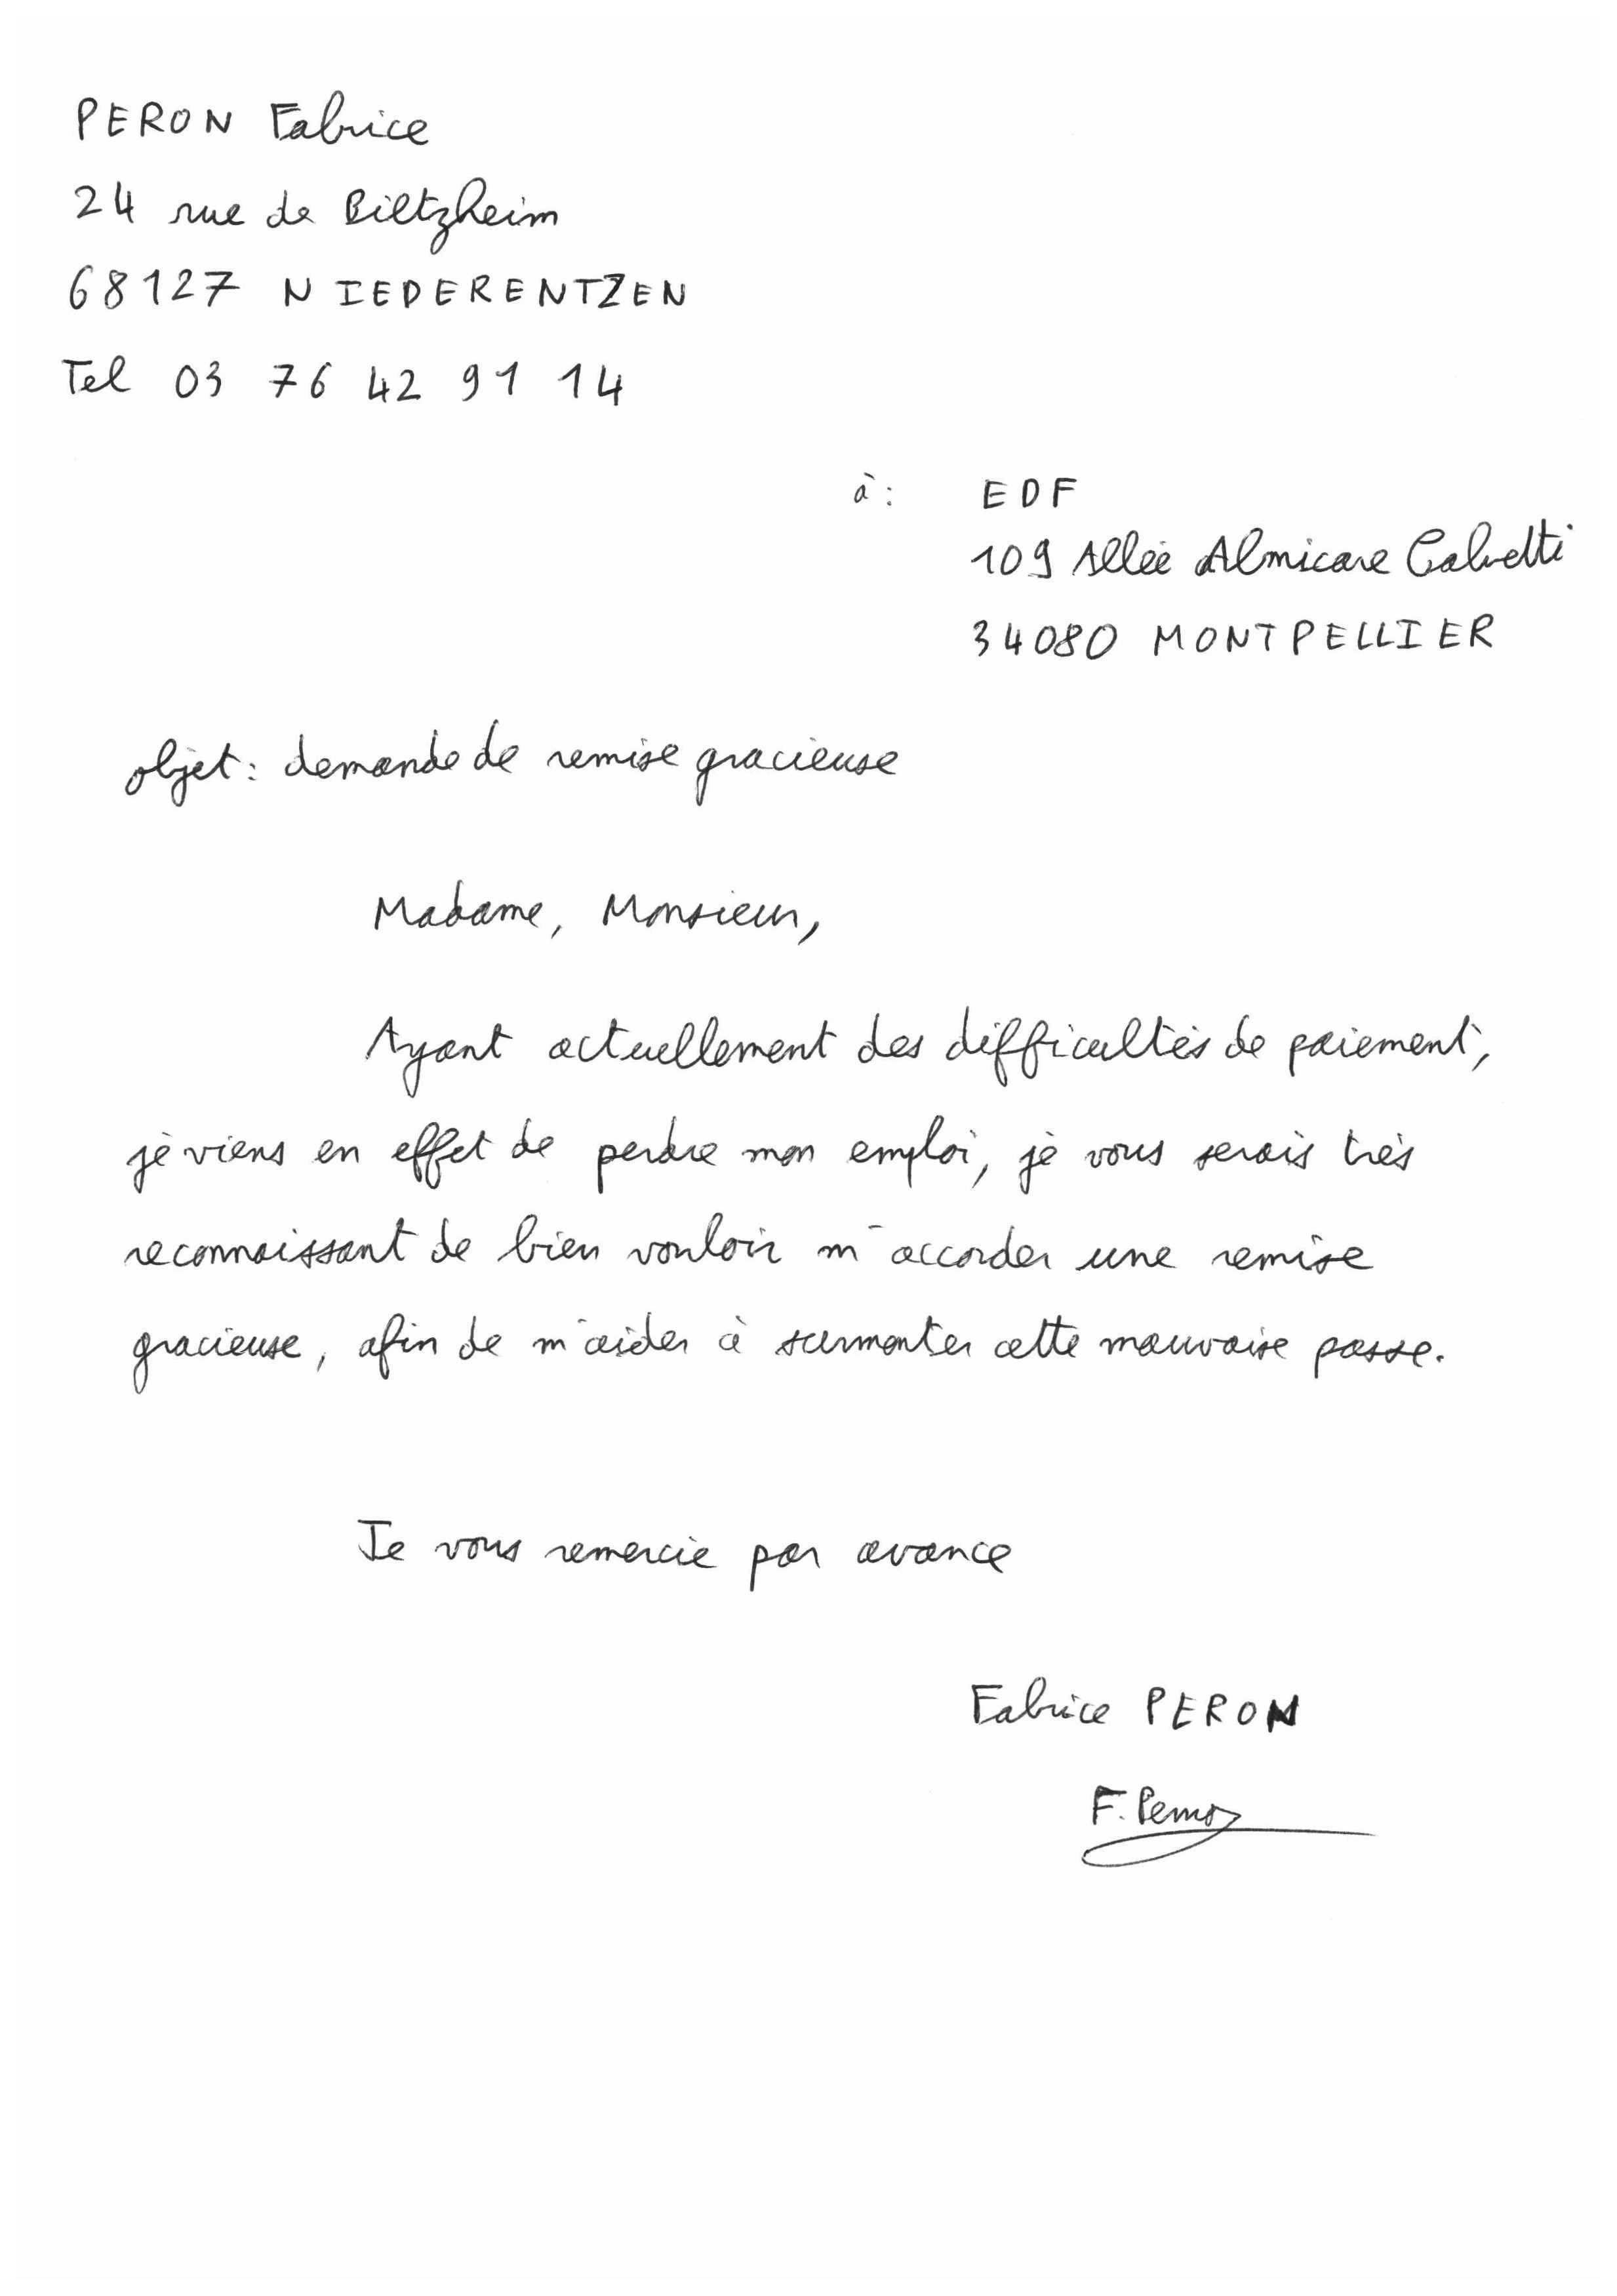 PERON Fabrice
24 rue de Biltzheim
68127 NIEDERENTZEN
Tel 03 76 42 91 14
à : EDF
109 Allée Almicare Calvetti
34080 MONTPELLIER
objet : demande de remise gracieuse
Madame, Monsieur,
Ayant actuellement des difficultés de paiement,
je viens en effet de perdre mon emploi, je vous serais très
reconnaissant de bien vouloir m'accorder une remise
gracieuse, afin de m'aider à surmonter cette mauvaise passe.
Je vous remercie par avance
Fabrice PERON
F. Peron